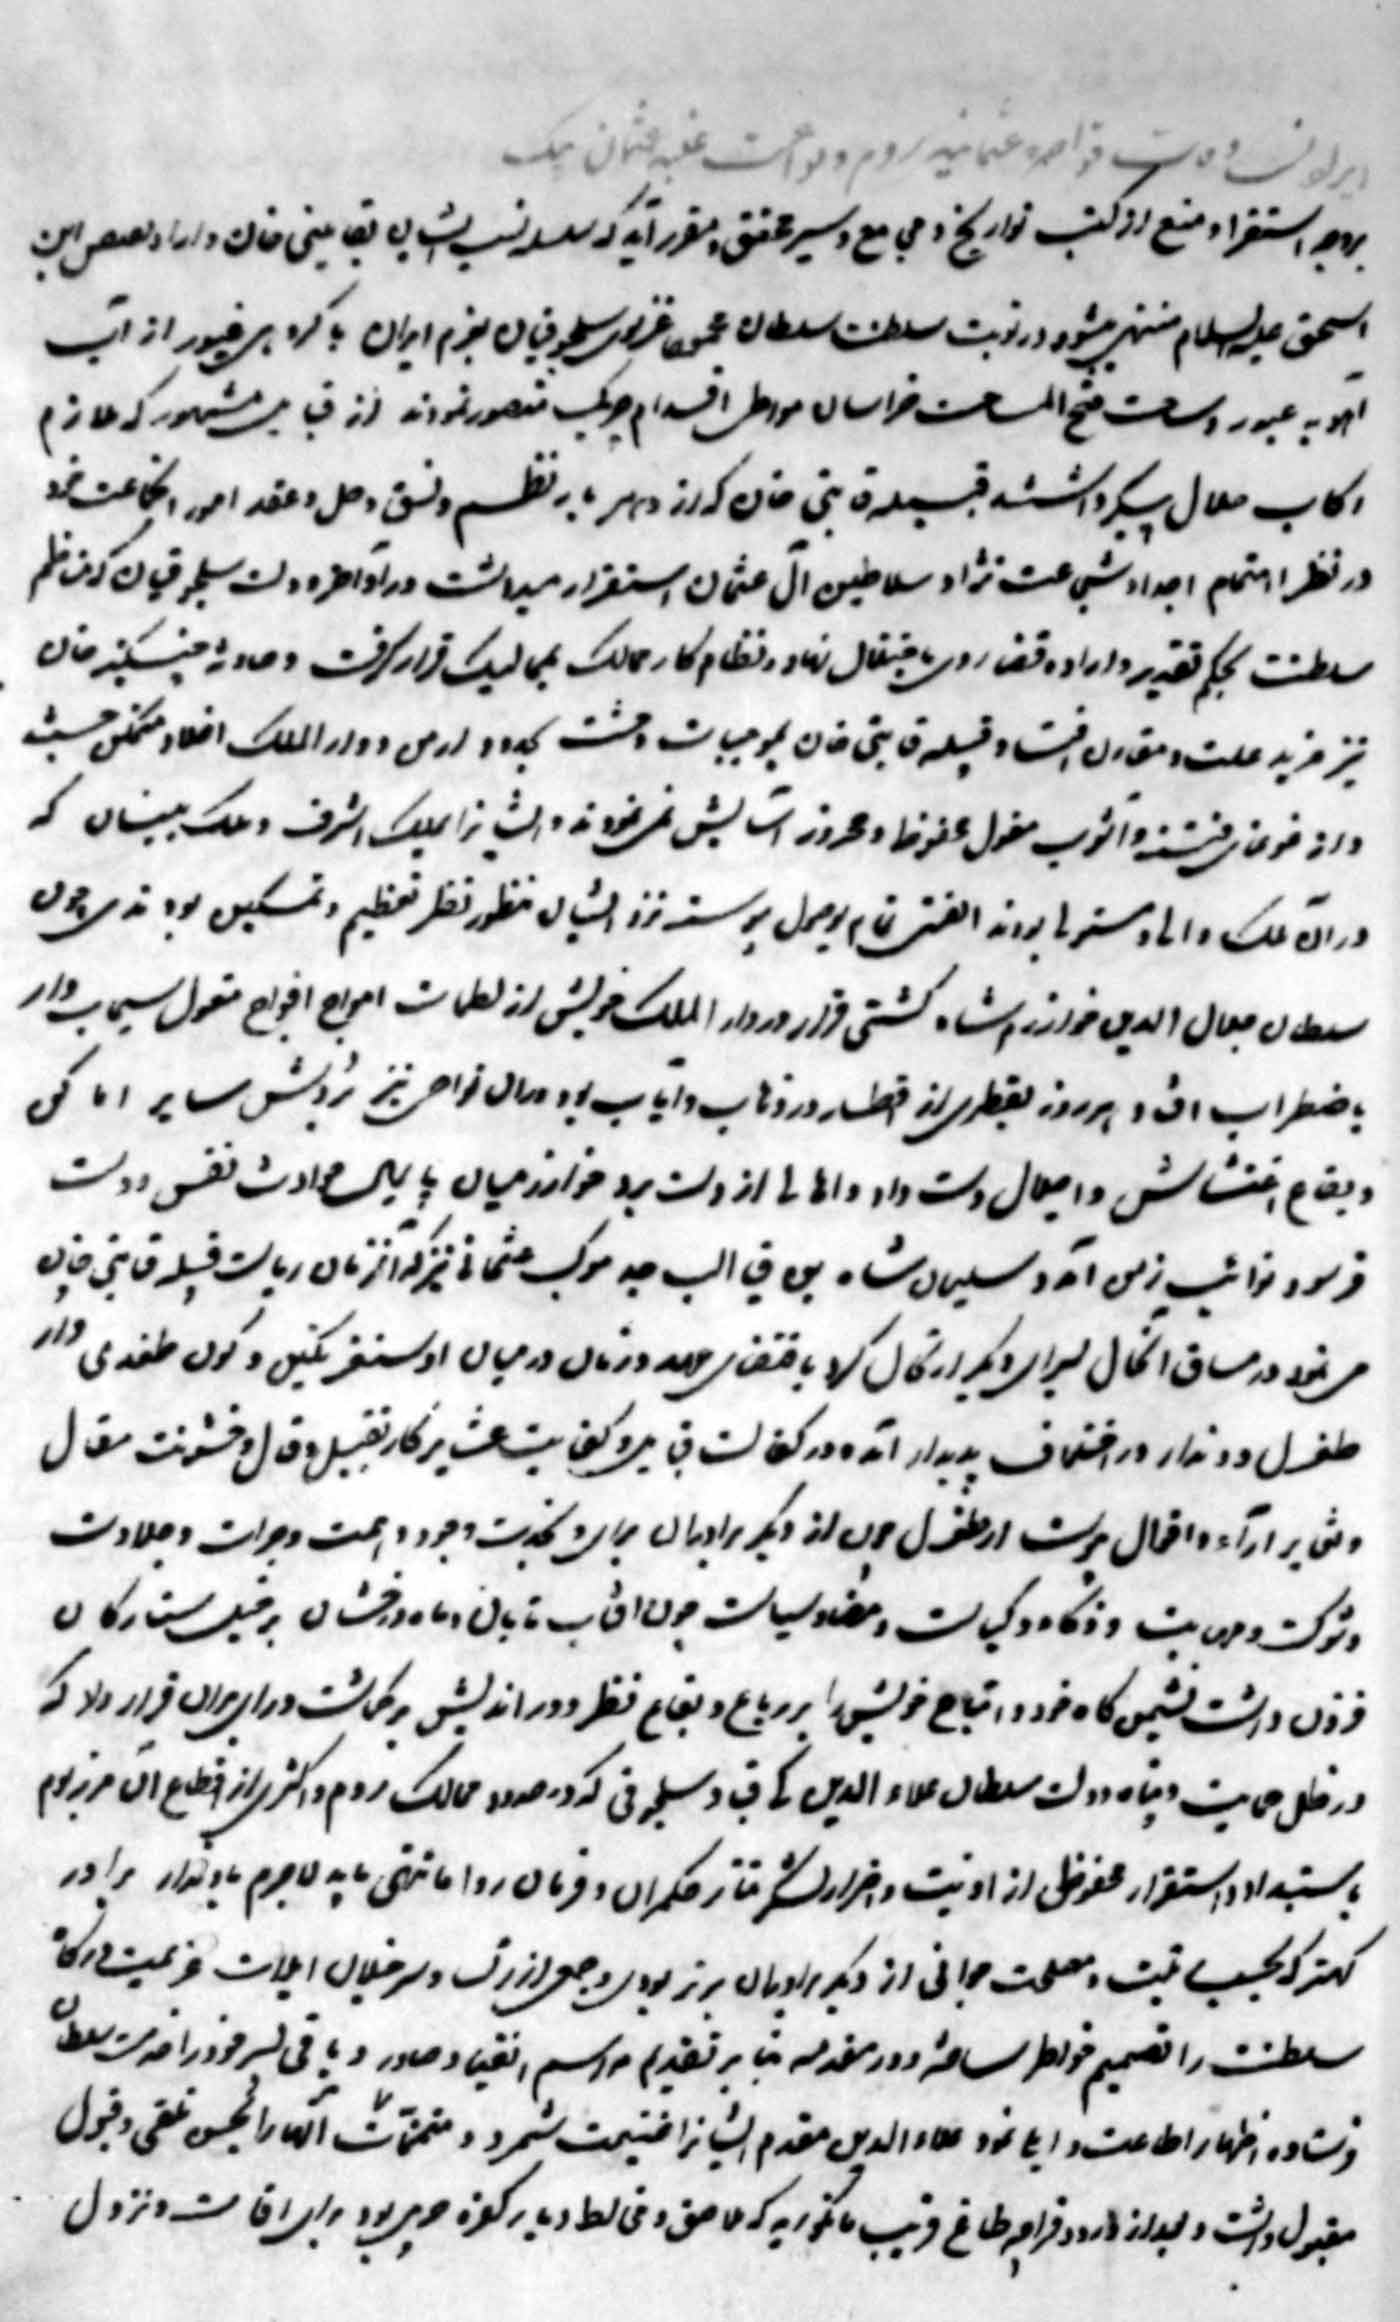 قیاصره عثمانیه روم و بواعث غلبه عثمان بیک
بروجه استقراء و تتبع از کتب تواریخ و مجامع و سیر محقق و مقرر آید که سلسله نسب ایشان بقایینی خان و از اولاد عیص ابن
اسحق علیه السلام منتهی میشود در نوبت سلطنت سلطان محمود غزنوی سلجوقیان بعزم ایران با گروهی غیور از آب
آمویه عبور و ساحت فتح المساحت خراسان مواطی اقدام چریک منصور نمودند از قبایل مشهور که ملازم
رکاب جلال پیکر داشتند قبیله قایتی خان که از دیرباز نظم و نسق و حل و عقد امور انجماعت نمود
در نظر اهتمام اجداد شجاعت نژاد سلاطین آل عثمان استقرار میداشت در اواخر دولت سلجوقیان که مناظم
سلطنت بحکم تقدیر و اراده قضا روی باختلال نهاد و نظام کار ممالک بممالیک قرار گرفت و حادثه چنگیز خان
نیز مزید علت و مقارن افتاد قبیله قایتی خان بموجبات وحشت بحدود ارمن و دار الملک اخلاط متمکن گشته
و از غوغای فتنه و آشوب مغول محفوظ و هر روز آسایش می نمودند و ایشانرا بملک اشرف و ملک بیسان که
در آن ملک والی و مستولی بودند الفتی تمام بوصول پیوسته نزد ایشان منظور نظر تعظیم و تمکین بودندی چون
سلطان جلال الدین خوارزم شاه کشتی قرار در دار الملک خویش از لطمات امواج افواج مغول سیماب وار
باضطراب افتاد هر روز بقطری از اقطار در ذهاب و ایاب بود در آن نواحی نیز روش سایر اماکن
و بقاع اغتشاش و اختلال دست داد و اهالی از دست برد خوارزمیان پایمال حوادث نفس دولت
فرسود نوایب زمن آمد سلیمان شاه بن قیا الب جد موکب عثمانی نیز که آنزمان ریاست قبیله قایتی خان
می نمود در مساق انحال بسرای دیگر ارتحال کرد باقتضای عهد و زمان در میان او سنقر تکین و کون طغدی و ار
طغرل و دندار در اختلاف پدیدار آمد در کفالت قبایل و کفایت عشایر کار بقیل و قال و خشونت مقال
و تغایر آراء و افعال پیوست ارطغرل چون از دیگر برادران بمردی و نجدت و جود و همت و جرات و جلادت
و شوکت و مهابت و ذکاء و کیاست و مضاء سیاست چون افتاب تابان و ماه درخشان بر خیل ستارگان
فزون داشت نشیمن گاه خود و اتباع خویش را بر رباع و بقاع نظر دوراندیش برگماشت و رای بران قرار داد که
در ظل حمایت و پناه دولت سلطان علاء الدین کیقباد سلجوقی که در حدود ممالک روم و اکثری از اقطاع آن مرز بوم
باستبداد و استقرار محفوظ از اذیت و اضرار لشکر تتار حکمران و فرمان روا مامنی یابد لاجرم با دندار برادر
کهتر که بحسب نیت و مصلحت جوانی از دیگر برادران برتر بودی و جمعی از رؤسا و سرخیلان ایلات عزیمت درگاه
سلطنت را تصمیم خواطر ساخته و در مقدمه بنابر تقدیم مراسم انقیاد صادر و باقی پسر خود را خدمت سلطان
فرستاده اظهار اطاعت و ایلی نمود علاء الدین مقدم ایشانرا غنیمت شمرد و متمنیات آنها را بحسن تلقی و قبول
مقبول داشت و بعد از ورود قراجه طاغ قریب بانگوریه که ملاصق و مخالط دیار کفره حربی بود برای اقامت و نزول